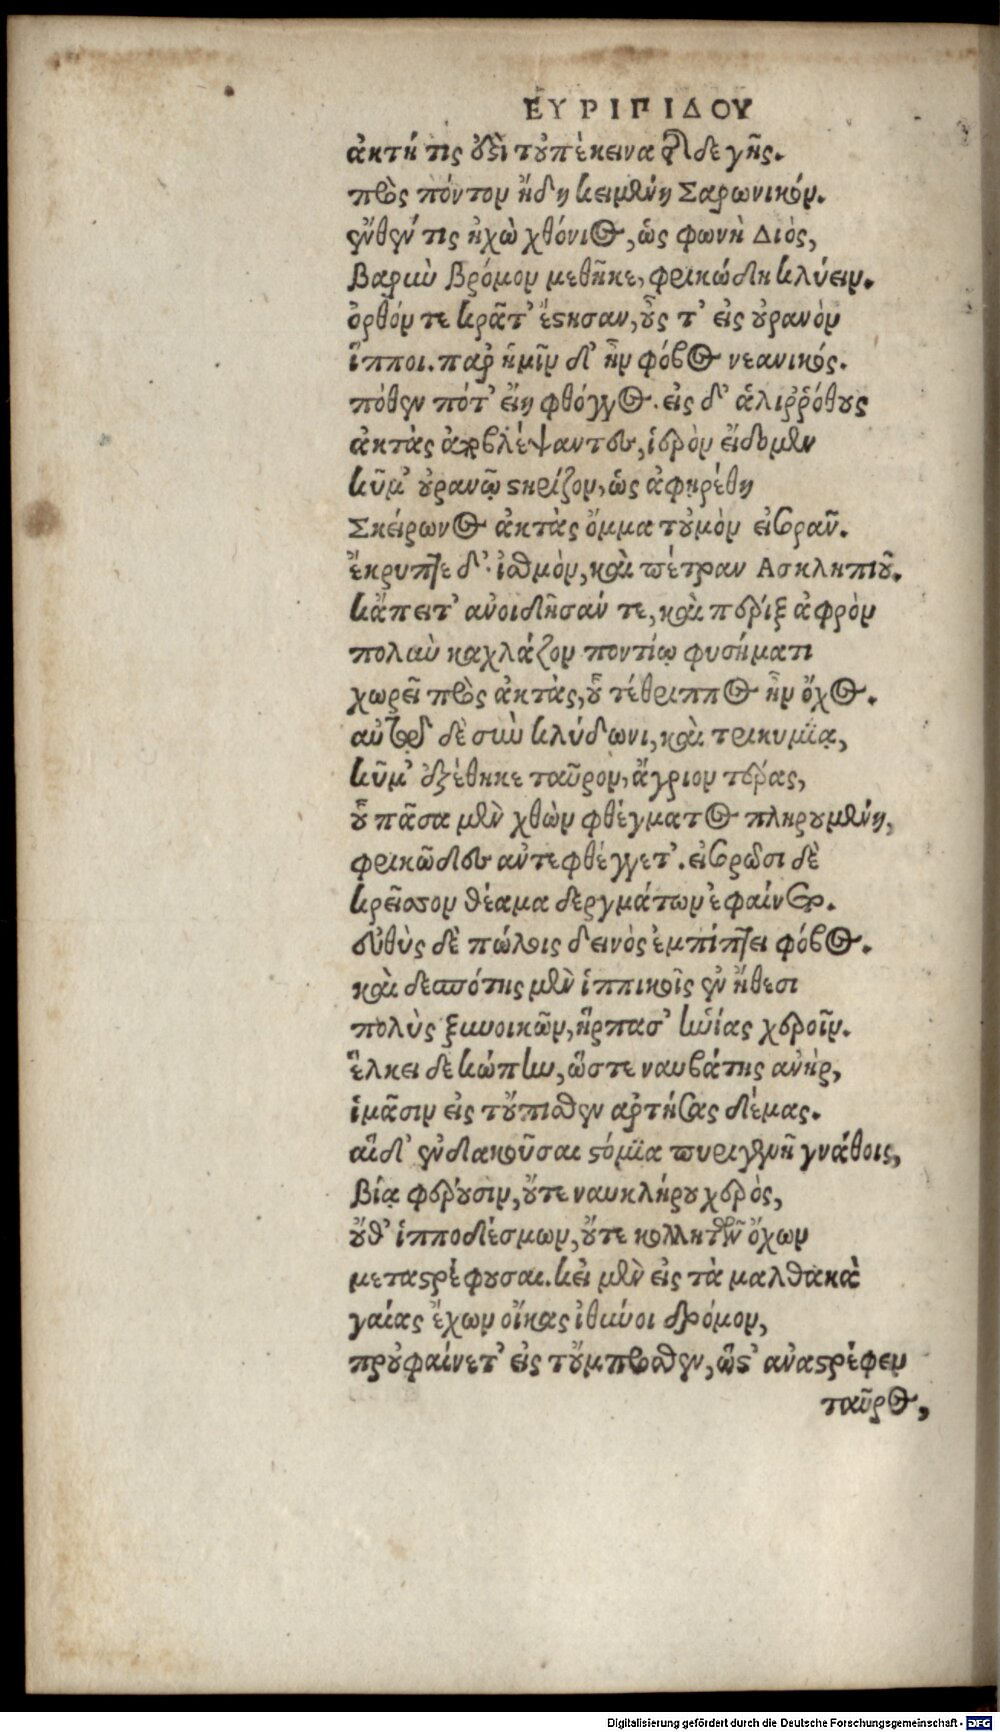 ΕΥΡΙΠΙΔΟΥ
ἀκτή τις ἐστὶ τοὐπέκεινα τῆσδε γῆς.
πρὸς πόντον ἤδη κειμένη Σαρωνικόν.
ἔνθεν τις ἠχὼ χθόνιος, ὡς φωνὴ Διὸς,
βαρὺν βρόμον μεθῆκε, φρικώδη κλύειν.
ὀρθόν τε κρᾶτ' ἔστησαν, οὖς τ' εἰς οὐρανὸν
ἵπποι. παρ' ἡμῖν δ' ἦν φόβος νεανικός.
πόθεν πότ' εἴη φθόγγος. εἰς δ' ἁλιῤῥόθους
ἀκτὰς ἀποβλέψαντες, ἱερὸν εἴδομεν
κῦμ' οὐρανῷ στηρίζον, ὡς ἀφῃρέθη
Σκείρωνος ἀκτὰς ὄμμα τοὐμὸν εἰσορᾶν.
ἔκρυπτε δ' ἰσθμὸν, καὶ πέτραν Ασκληπιοῦ.
κἄπειτ' ἀνοιδῆσάν τε, καὶ πέριξ ἀφρὸν
πολὺν καχλάζον ποντίῳ φυσήματι
χωρεῖ πρὸς ἀκτὰς, οὗ τέθριππος ἦν ὄχος.
αὐτῷ δὲ σὺν κλύδωνι, καὶ τρικυμίᾳ,
κῦμ' ἐξέθηκε ταῦρον, ἄγριον τέρας,
οὗ πᾶσα μὲν χθὼν φθέγματος πληρουμένη,
φρικῶδες αντεφθέγγετ'. εἰσορῶσι δὲ
κρεῖσσον θέαμα δεργμάτων ἐφαίνετο.
εὐθὺς δὲ πώλοις δεινὸς ἐμπίπτει φόβος.
καὶ δεσπότης μὲν ἱππικοῖς ἐν ἤθεσι
πολὺς ξυνοικῶν, ἥρπασ' ἡνίας χεροῖν.
ἕλκει δὲ κώπην, ὥστε ναυβάτης ανὴρ,
ἱμᾶσιν εἰς τοὔπισθεν αρτήσας δέμας.
αἱ δ' ἐνδακοῦσαι στόμια πυριγενῆ γνάθοις,
βίᾳ φέρουσιν, οὔτε ναυκλήρου χερὸς,
οὔθ' ἱπποδέσμων, οὔτε κολλητῶν ὄχων
μεταστρέφουσαι. κεἰ μὲν εἰς τὰ μαλθακὰ
γαίας ἔχων οἴακας ἰθύνοι δρόμον,
προὐφαίνετ' εἰς τοὔμπροσθεν, ὥστ' ἀναστρέφειν
ταῦρος,
Digitalisierung gefördert durch die Deutsche Forschungsgemeinschaft - DFG